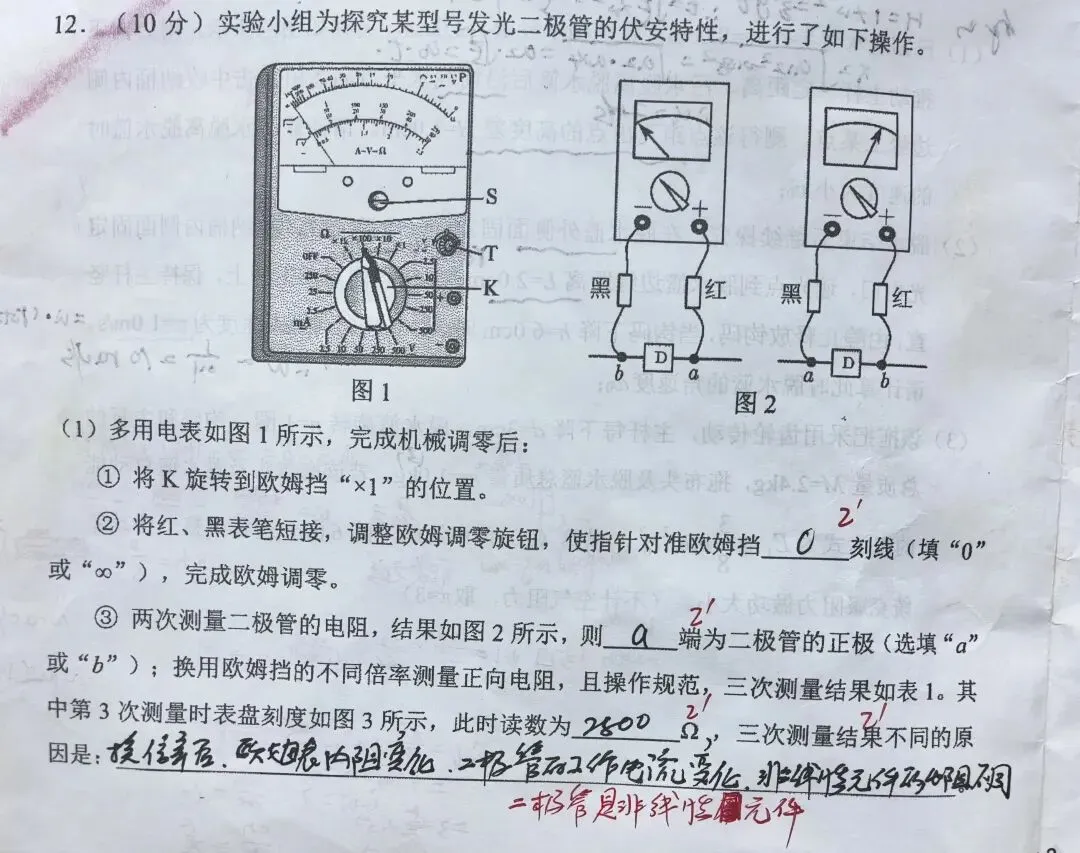 12. (10 分) 实验小组为探究某型号发光二极管的伏安特性，进行了如下操作。
A-V-Ω
P
S
T
K
Ω
×100 ×10
×1
OFF
250
25
mA
2.5 10 50 250 500 V
黑 红 黑 红
D
b a
D
a b
图1
图2
(1) 多用电表如图 1 所示，完成机械调零后：
① 将 K 旋转到欧姆挡“×1”的位置。
2'
② 将红、黑表笔短接，调整欧姆调零旋钮，使指针对准欧姆挡 0 刻线（填“0”
或“∞”），完成欧姆调零。
2'
③ 两次测量二极管的电阻，结果如图 2 所示，则 a 端为二极管的正极（选填“a”
或“b”）；换用欧姆挡的不同倍率测量正向电阻，且操作规范，三次测量结果如表 1。其
2' 2'
中第 3 次测量时表盘刻度如图 3 所示，此时读数为 2800 Ω，三次测量结果不同的原
因是：换倍率后，欧姆表内阻变化，二极管的工作电流变化，非线性元件的阻不同
二极管是非线性元件